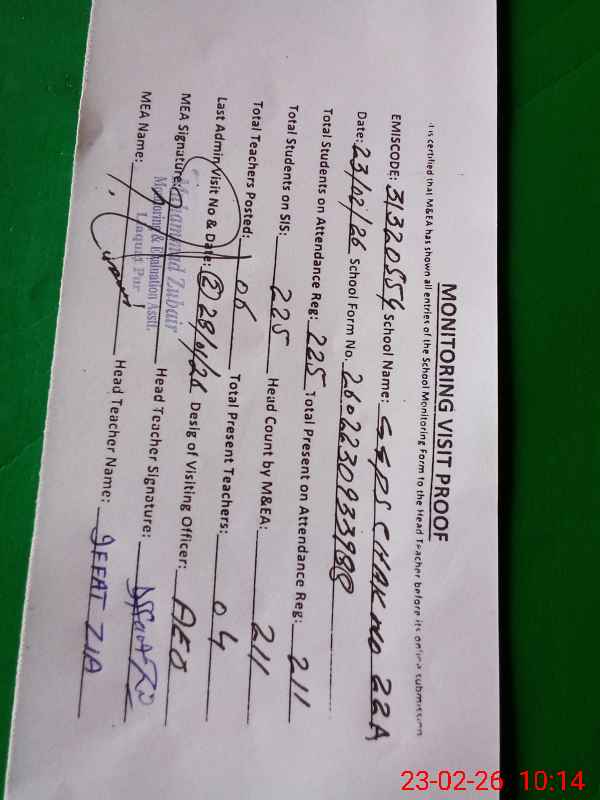 MONITORING VISIT PROOF
It is certified that M&EA has shown all entries of the School Monitoring Form to the Head Teacher before its online submission
EMISCODE: 31320554 School Name: GGPS CHAK NO 22A
Date: 23/02/26 School Form No. 260223093398
Total Students on Attendance Reg: 225 Total Present on Attendance Reg: 211
Total Students on SIS: 225 Head Count by M&EA: 211
Total Teachers Posted: 05 Total Present Teachers: 04
Last Admin Visit No & Date: (2) 28/01/26 Desig of Visiting Officer: AEO
MEA Signature: Head Teacher Signature:
Muhammad Zubair
Monitoring & Evaluation Asstt.
Liaquat Pur
MEA Name: Head Teacher Name: IFFAT ZIA
23-02-26 10:14